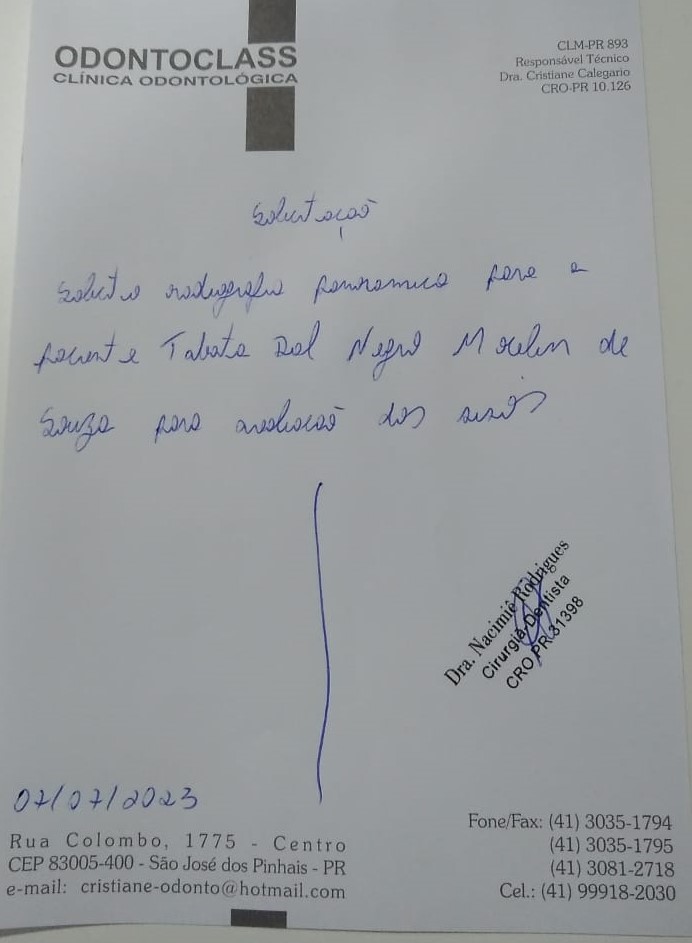 ODONTOCLASS
CLÍNICA ODONTOLÓGICA
CLM-PR 893
Responsável Técnico
Dra. Cristiane Calegario
CRO-PR 10.126
Solicitação
Solicito radiografia panoramica para a
paciente Tabata Dal Negro Moulin de
Souza para avaliação dos sisos
Dra. Nacimiê Rodrigues
Cirurgiã-Dentista
CRO PR 31398
07/07/2023
Rua Colombo, 1775 - Centro
CEP 83005-400 - São José dos Pinhais - PR
e-mail: cristiane-odonto@hotmail.com
Fone/Fax: (41) 3035-1794
(41) 3035-1795
(41) 3081-2718
Cel.: (41) 99918-2030